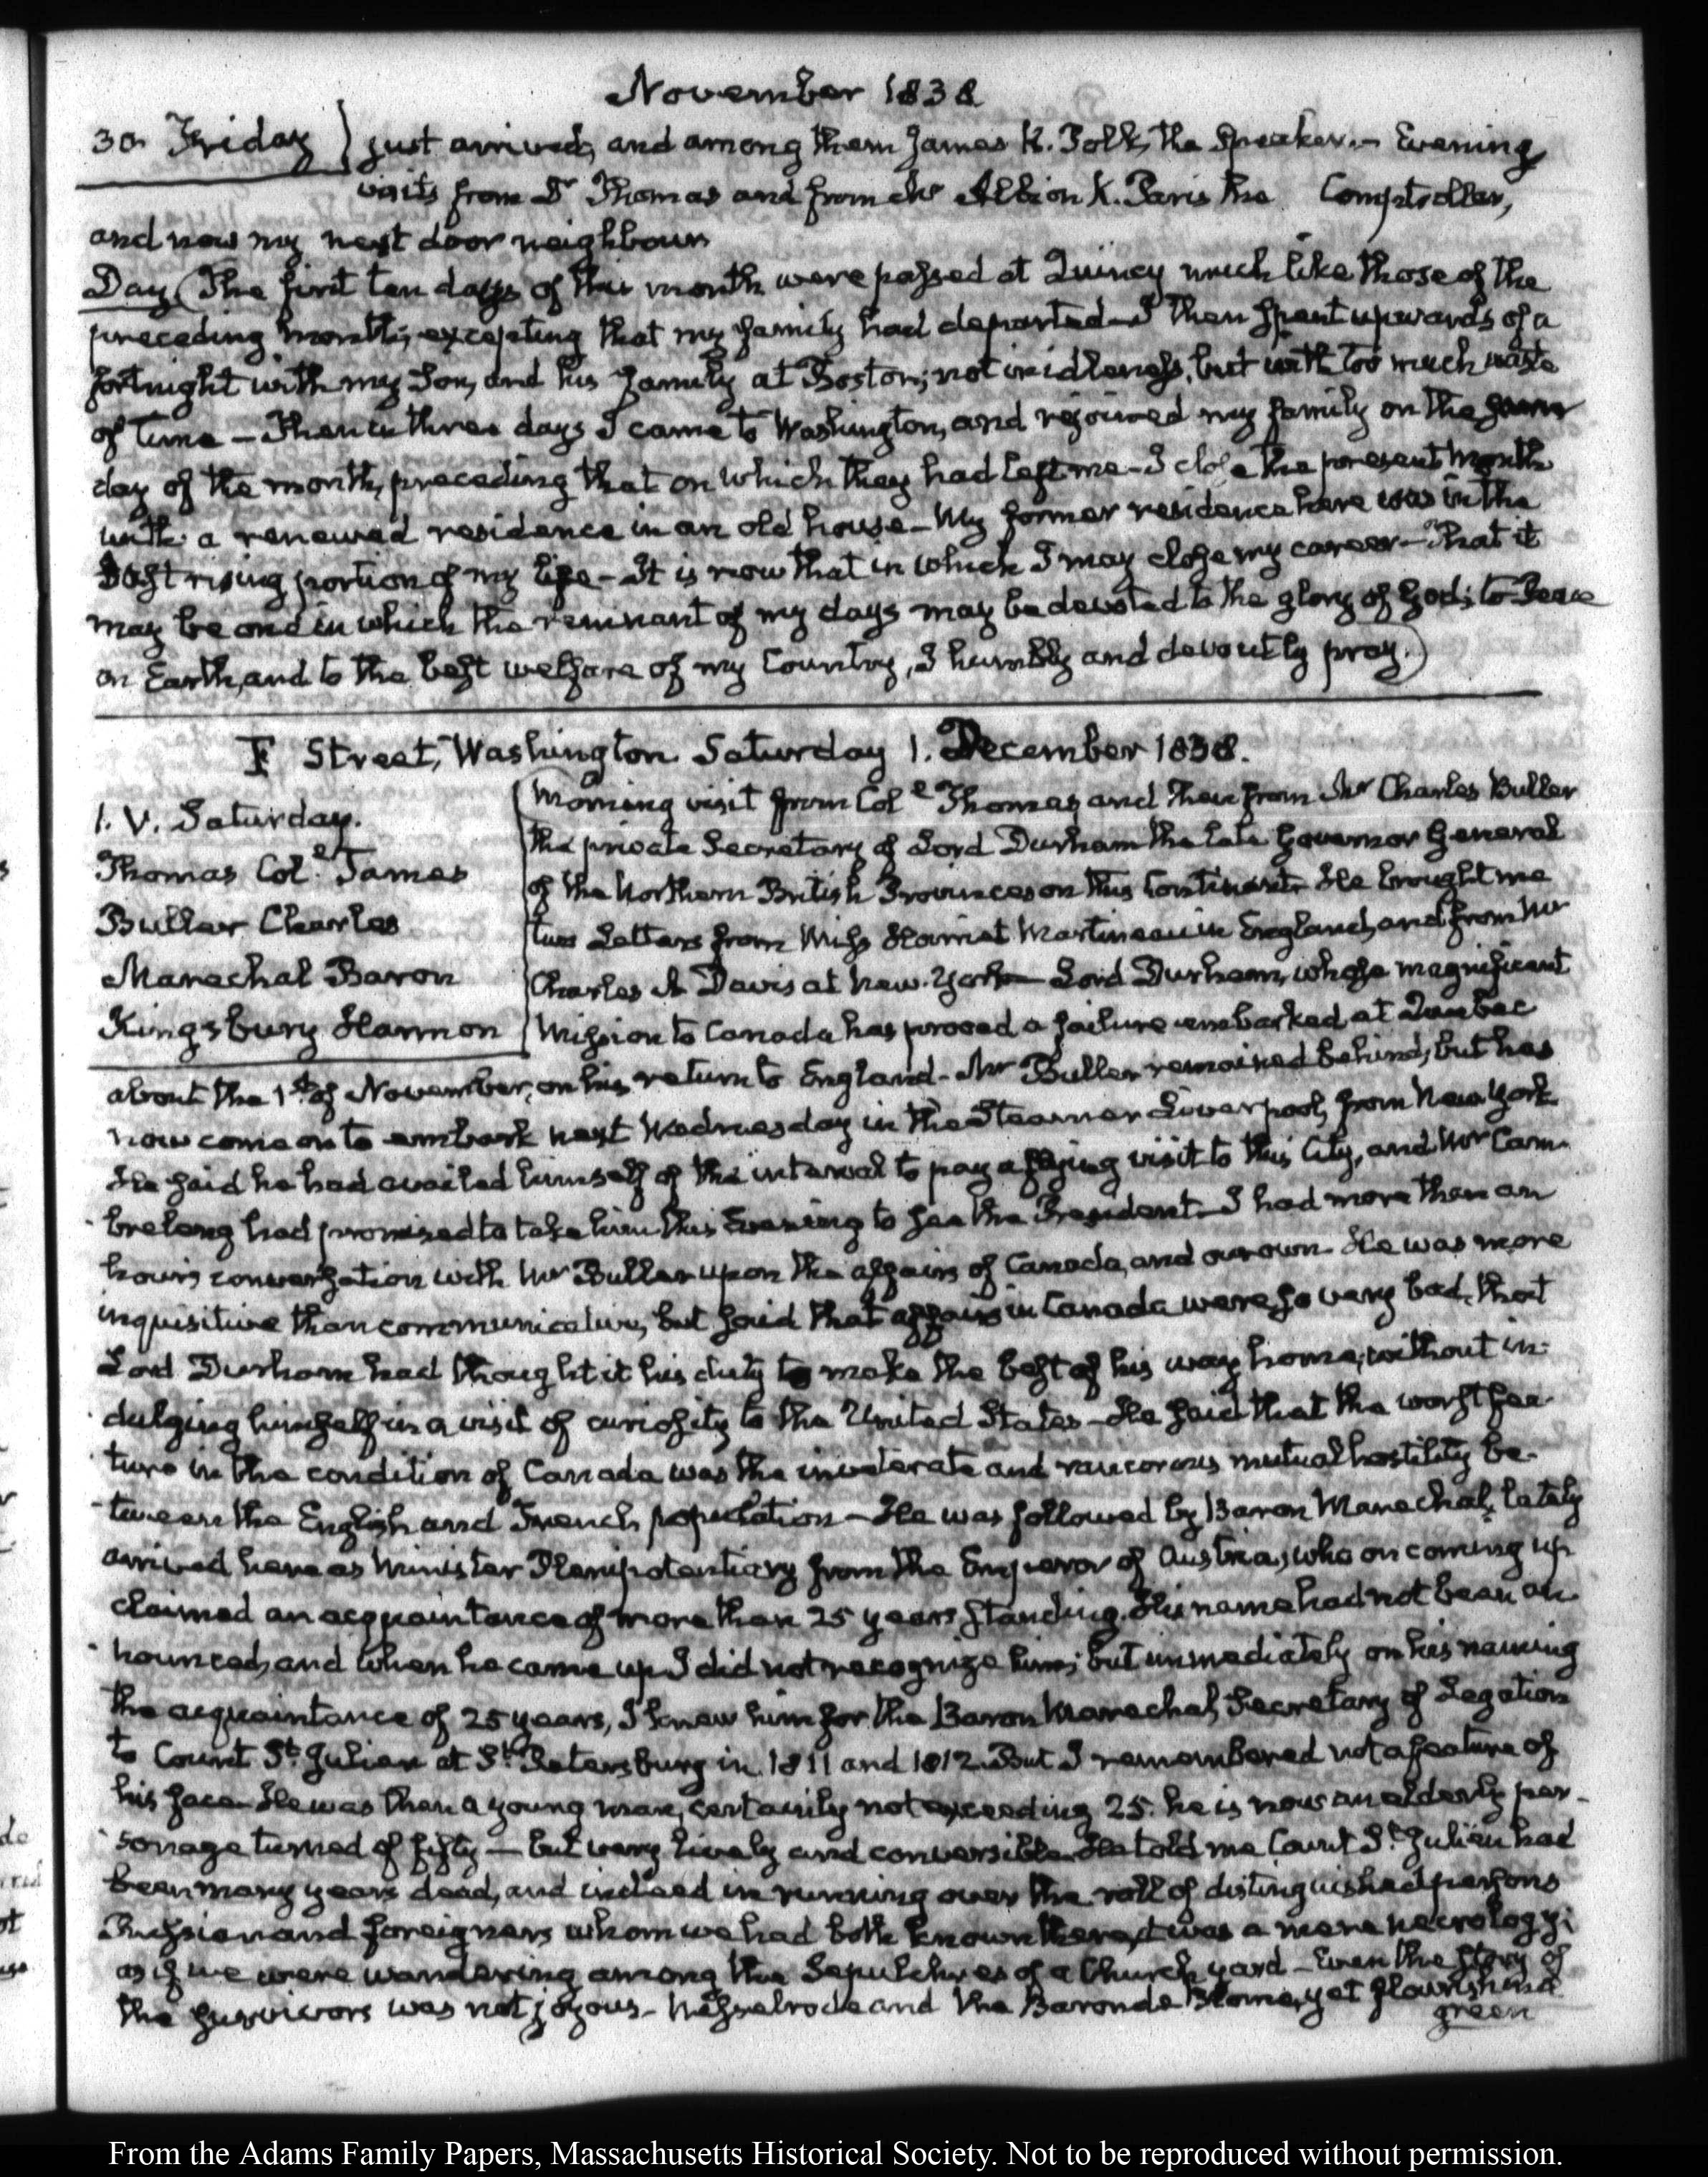 November 1838
30 Friday } just arrived, and among them James K. Polk, the Speaker.— Evening
visits from Dr Thomas and from Mr Albion K. Paris the Comptroller,
and now my next door neighbour
Day (The first ten days of this month were passed at Quincy much like those of the
preceding month; excepting that my family had departed— I then spent upwards of a
fortnight with my Son, and his family at Boston; not in idleness, but with too much waste
of time — Then in three days I came to Washington, and rejoined my family on the same
day of the month, preceding that on which they had left me— I close the present Month
with a renewed residence in an old house— My former residence here was in the
last rising portion of my life— It is now that in which I may close my career— That it
may be one in which the remnant of my days may be devoted to the glory of God; to Peace
on Earth, and to the best welfare of my Country, I humbly and devoutly pray.)
F Street, Washington Saturday 1. December 1838.
1. V. Saturday.
Thomas Col.l James
Buller Charles
Marechal Baron
Kingsbury Harmon
Morning visit from Coll Thomas, and then from Mr Charles Buller
the private Secretary of Lord Durham the late Governor General
of the Northern British Provinces on this Continent. He brought me
two Letters from Miss Harriet Martineau in England, and from Mr
Charles A Davis at New-York— Lord Durham, whose magnificent
Mission to Canada has proved a failure embarked at Quebec
about the 1st of November, on his return to England— Mr Buller remained behind, but has
now come on to embark next Wednesday in the Steamer Liverpool, from New York
He said he had availed himself of the interval to pay a flying visit to this City, and Mr Cam-
breleng had promised to take him this Evening to see the President— I had more than an
hour's conversation with Mr Buller upon the affairs of Canada, and our own. He was more
inquisitive than communicative, but said that affairs in Canada were so very bad, that
Lord Durham had thought it his duty to make the best of his way home, without in-
dulging himself in a visit of curiosity to the United States— He said that the worst fea-
ture in the condition of Canada was the inveterate and rancorous mutual hostility be-
tween the English and French population— He was followed by Baron Marechal, lately
arrived here as Minister Plenipotentiary from the Emperor of Austria, who on coming up
claimed an acquaintance of more than 25 years standing. His name had not been an-
nounced, and when he came up I did not recognize him; but immediately on his naming
the acquaintance of 25 years, I knew him for the Baron Marechal, Secretary of Legation
to Count St Julien at St Petersburg in 1811 and 1812. But I remembered not a feature of
his face— He was then a young man, certainly not exceeding 25. he is now an elderly per-
sonage turned of fifty — but very lively and conversible. He told me Count St Julien had
been many years dead, and indeed in running over the roll of distinguished persons
Russian and foreigners whom we had both known there, it was a mere necrology;
as if we were wandering among the Sepulchres of a Church yard— Even the story of
the survivors was not joyous— Nesselrode and the Baron de Blome, yet flourishing
green
From the Adams Family Papers, Massachusetts Historical Society. Not to be reproduced without permission.